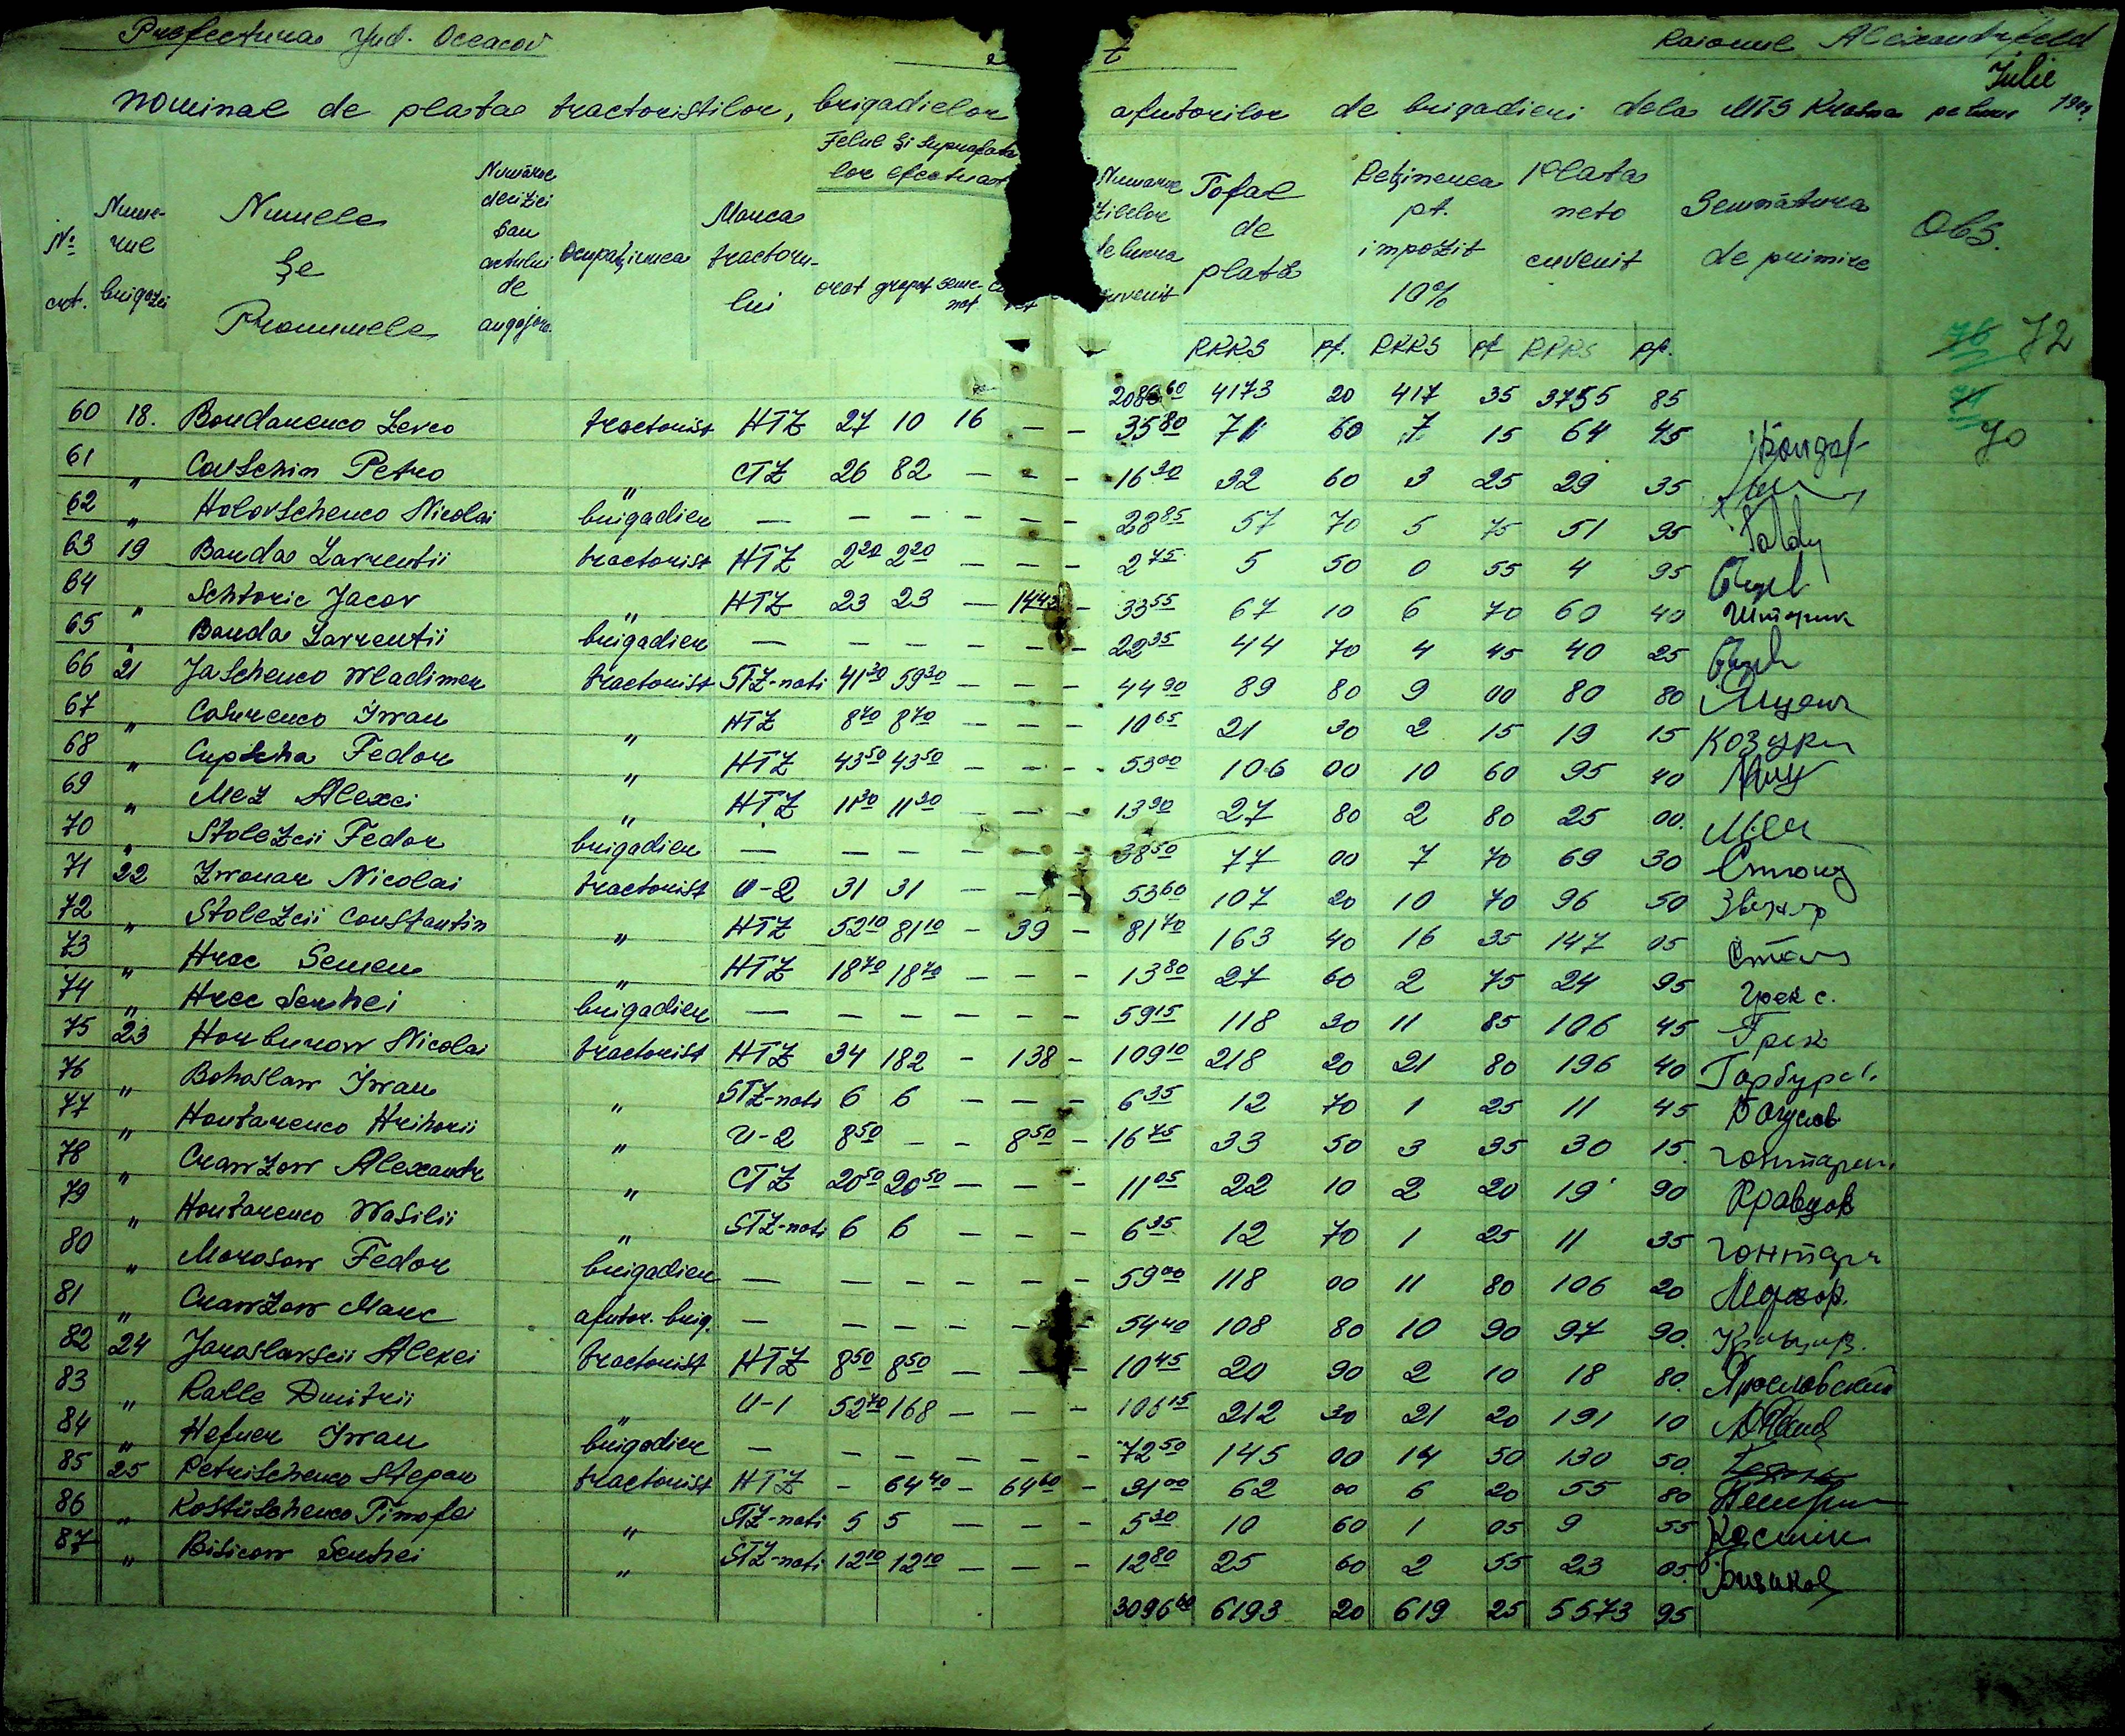 Prefectura Jud. Oceacov Raionul Alexandrfeld
Julie
nominal de plata tractoriștilor, brigadielor ajutorilor de brigadieri dela MTS Krasna pe luna
Nº crt. Numerul brigăzii Numele și Pronumele Numărul deciziei sau actului de angajare Ocupațiunea Marca tractorului Felul și suprafața lor efectuat arat grapat seme-nat Numărul zilelor de lucru cuvenit Total de plată Reținerea pt. impozit 10% Plata neto cuvenit Semnătura de primire Obs.
RKKS pf. RKKS pf RKKS pf. 76 72
2086 60 4173 20 417 35 3755 85
60 18. Bondarenco Levco tractorist HTZ 27 10 16 — — 35 80 71 60 7 15 64 45 70
61 " Covschin Petro " CTZ 26 82 — — — 16 30 32 60 3 25 29 35
62 " Holovschenco Nicolai brigadier — — — — — — 28 85 57 70 5 75 51 95
63 19 Banda Lavrentii tractorist HTZ 2 20 2 20 — — — 2 75 5 50 0 55 4 95
64 " Schtoric Jacov " HTZ 23 23 — 14 43 — 33 55 67 10 6 70 60 40 Шторик
65 " Banda Lavrentii brigadier — — — — — — 22 35 44 70 4 45 40 25
66 21 Jaschenco Wladimer tractorist STZ-nati 41 30 59 30 — — — 44 90 89 80 9 00 80 80 Ященк
67 " Cosurenco Iwan " HTZ 8 70 8 70 — — — 10 65 21 30 2 15 19 15 Козури
68 " Cupscha Fedor " HTZ 43 50 43 50 — — — 53 00 106 00 10 60 95 40
69 " Mez Alexei " HTZ 11 30 11 30 — — — 13 90 27 80 2 80 25 00
70 " Stolezcii Fedor brigadier — — — — — — 38 50 77 00 7 70 69 30 Столц
71 22 Zwonar Nicolai tractorist U-2 31 31 — — — 53 60 107 20 10 70 96 50 Звонар
72 " Stolezcii Constantin " HTZ 52 10 81 10 — 39 — 81 70 163 40 16 35 147 05 Стол
73 " Hrec Semen " HTZ 18 70 18 70 — — — 13 80 27 60 2 75 24 95 Грек с.
74 " Hrec Serhei brigadier — — — — — — 59 15 118 30 11 85 106 45 Грек
75 23 Horburow Nicolai tractorist HTZ 34 182 — 138 — 109 10 218 20 21 80 196 40 Горбуров
76 " Bohoslaw Iwan " STZ-nati 6 6 — — — 6 35 12 70 1 25 11 45 Богуслов
77 " Hontarenco Hrihorii " U-2 8 50 — — 8 50 — 16 75 33 50 3 35 30 15 Гонтарен
78 " Crawzow Alexandr " CTZ 20 50 20 50 — — — 11 05 22 10 2 20 19 90 Кравцов
79 " Hontarenco Wasilii " STZ-nati 6 6 — — — 6 35 12 70 1 25 11 35 Гонтар
80 " Morosow Fedor brigadier — — — — — — 59 00 118 00 11 80 106 20 Мороз
81 " Crawzow Marc ajutor. brig. — — — — — — 54 40 108 80 10 90 97 90 Кравцов.
82 24 Jaroslavscii Alexei tractorist HTZ 8 50 8 50 — — — 10 45 20 90 2 10 18 80 Ярославский
83 " Ralle Dmitrii " U-1 52 70 168 — — — 106 15 212 30 21 20 191 10
84 " Hefner Iwan brigadier — — — — — — 72 50 145 00 14 50 130 50
85 25 Petrischenco Stepan tractorist HTZ — 64 40 — 64 60 — 31 00 62 00 6 20 55 80 Петри
86 " Kostiuschenco Timofei " STZ-nati 5 5 — — — 5 30 10 60 1 05 9 55 Костин
87 " Bisicow Serhei " STZ-nati 12 10 12 10 — — — 12 80 25 60 2 55 23 05 Бизиков
3096 60 6193 20 619 25 5573 95